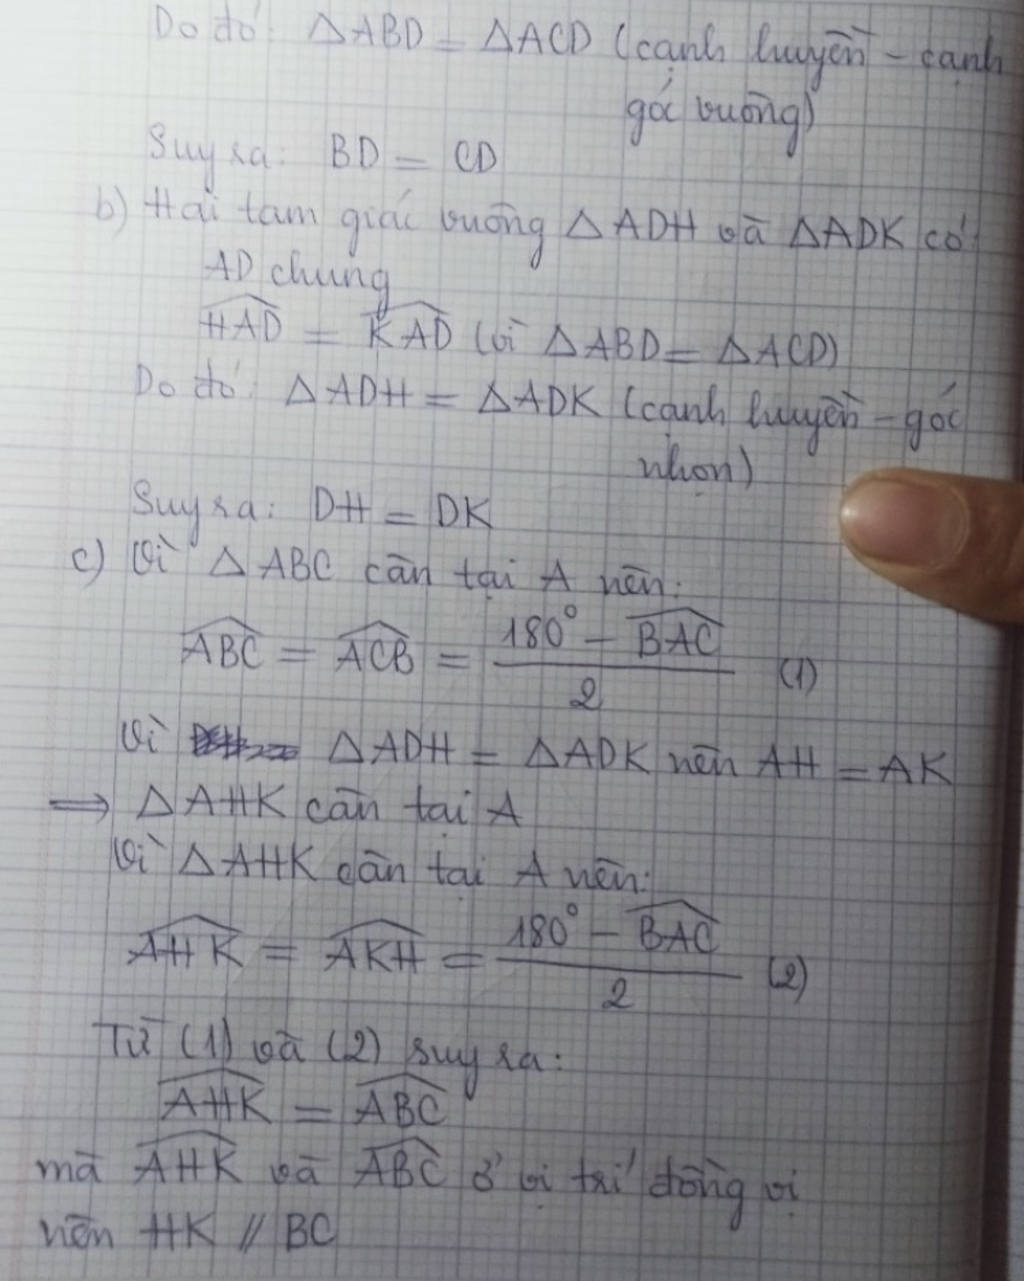 Do đó: △ABD = △ACD (cạnh huyền - cạnh
góc vuông)
Suy ra: BD = CD
b) Hai tam giác vuông △ADH và △ADK có:
AD chung
\widehat{HAD} = \widehat{KAD} (vì △ABD = △ACD)
Do đó: △ADH = △ADK (cạnh huyền - góc
nhọn)
Suy ra: DH = DK
c) Vì △ABC cân tại A nên:
\widehat{ABC} = \widehat{ACB} = \frac{180° - \widehat{BAC}}{2} (1)
Vì △ADH = △ADK nên AH = AK
⟹ △AHK cân tại A
Vì △AHK cân tại A nên:
\widehat{AHK} = \widehat{AKH} = \frac{180° - \widehat{BAC}}{2} (2)
Từ (1) và (2) suy ra:
\widehat{AHK} = \widehat{ABC}
mà \widehat{AHK} và \widehat{ABC} ở vị trí đồng vị
nên HK // BC